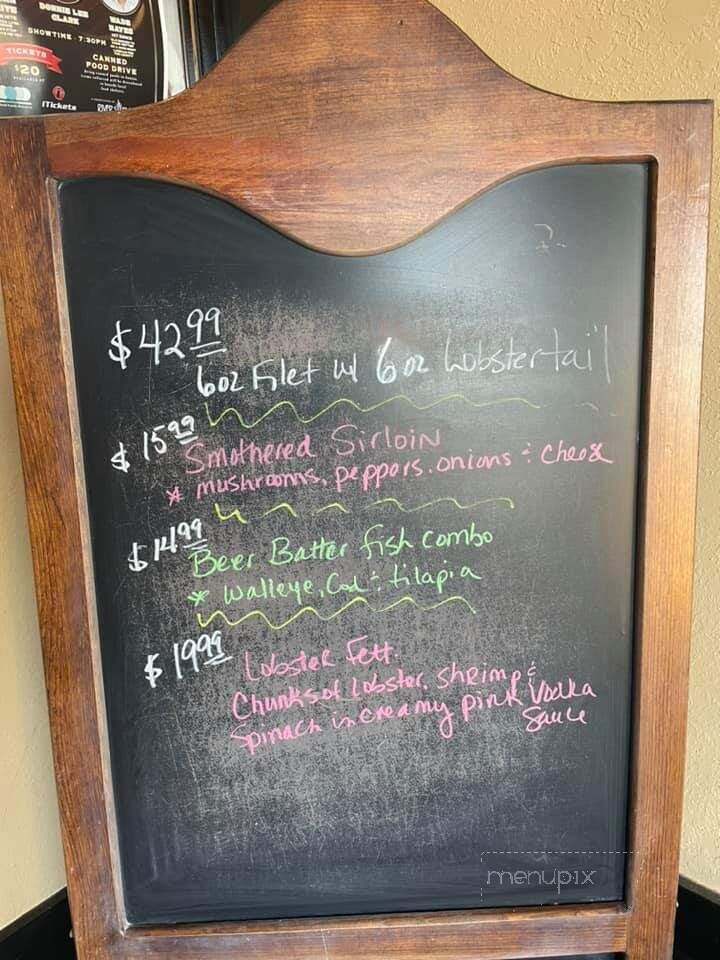 DONNIE LEE
CLARK
WADE
HAYES
SHOWTIME · 7:30PM
TICKETS
$20
CANNED
FOOD DRIVE
iTickets
$42.99
6oz Filet w/ 6oz Lobster tail
$15.99
Smothered Sirloin
* mushrooms, peppors, onions & cheese
$14.99
Beer Batter fish combo
* Walleye, Cod & tilapia
$19.99
Lobster Fett.
Chunks of Lobster, shrimp &
spinach in creamy pink Vodka
Sauce
menupix